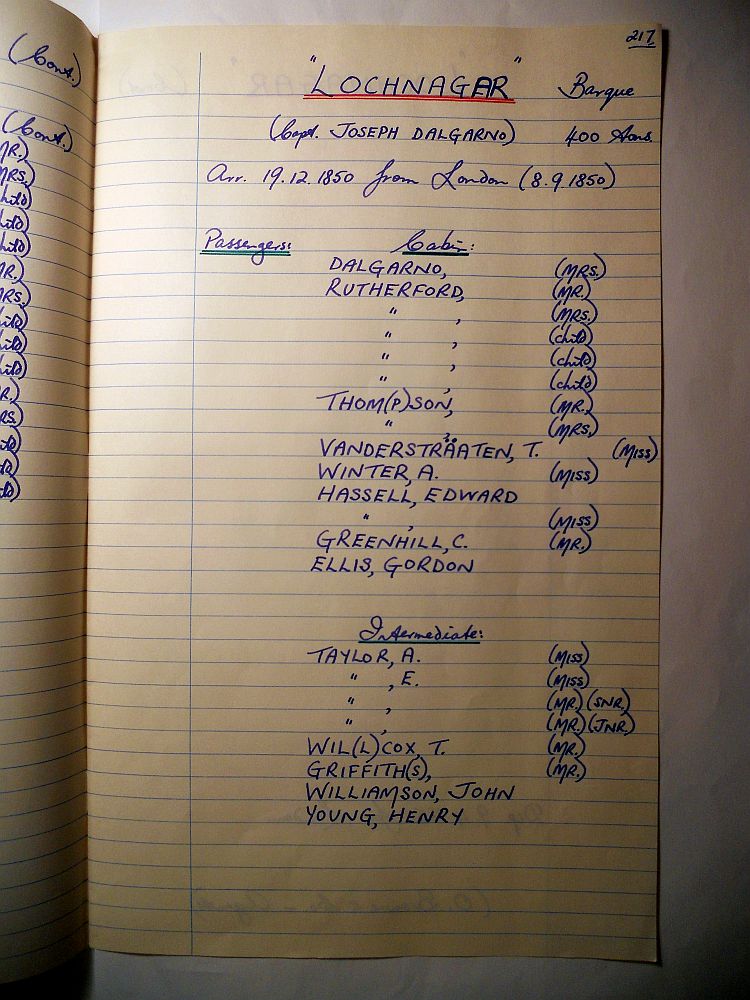 217
"LOCHNAGAR" Barque
(Capt. JOSEPH DALGARNO) 400 tons.
Arr. 19.12.1850 from London (8.9.1850)
Passengers: Cabin:
DALGARNO, (MRS.)
RUTHERFORD, (MR.)
" , (MRS.)
" , (child)
" , (child)
" , (child)
THOM(P)SON, (MR.)
" , (MRS.)
VANDERSTRÄATEN, T. (MISS)
WINTER, A. (MISS)
HASSELL, EDWARD
" , (MISS)
GREENHILL, C. (MR.)
ELLIS, GORDON
Intermediate:
TAYLOR, A. (MISS)
" , E. (MISS)
" , (MR.) (SNR.)
" , (MR.) (JNR.)
WIL(L)COX, T. (MR.)
GRIFFITH(S), (MR.)
WILLIAMSON, JOHN
YOUNG, HENRY
(Cont.)
(Cont.)